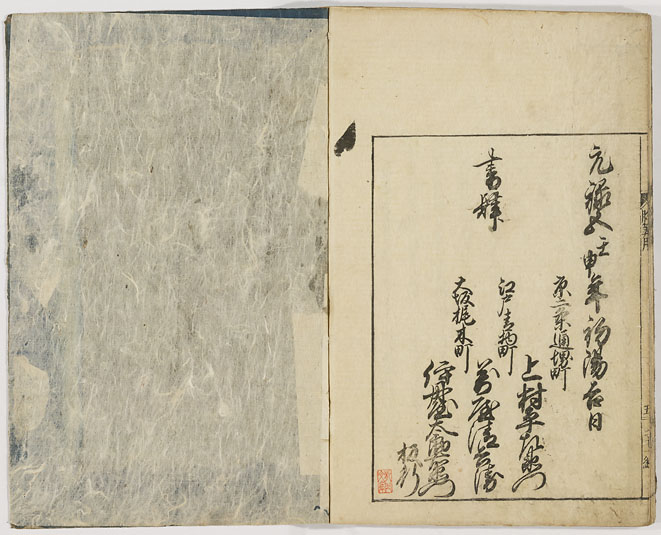 元禄五壬申年初陽吉日
京二条通堺町
上村平左衛門
書肆
江戸青物町
萬屋清兵衛
大坂梶木町
伊丹屋太郎右衛門
板行